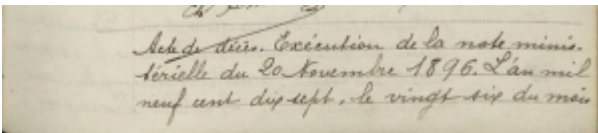 Acte de décès. Exécution de la note minis-
térielle du 20 Novembre 1896. L'an mil
neuf cent dix sept, le vingt six du mois